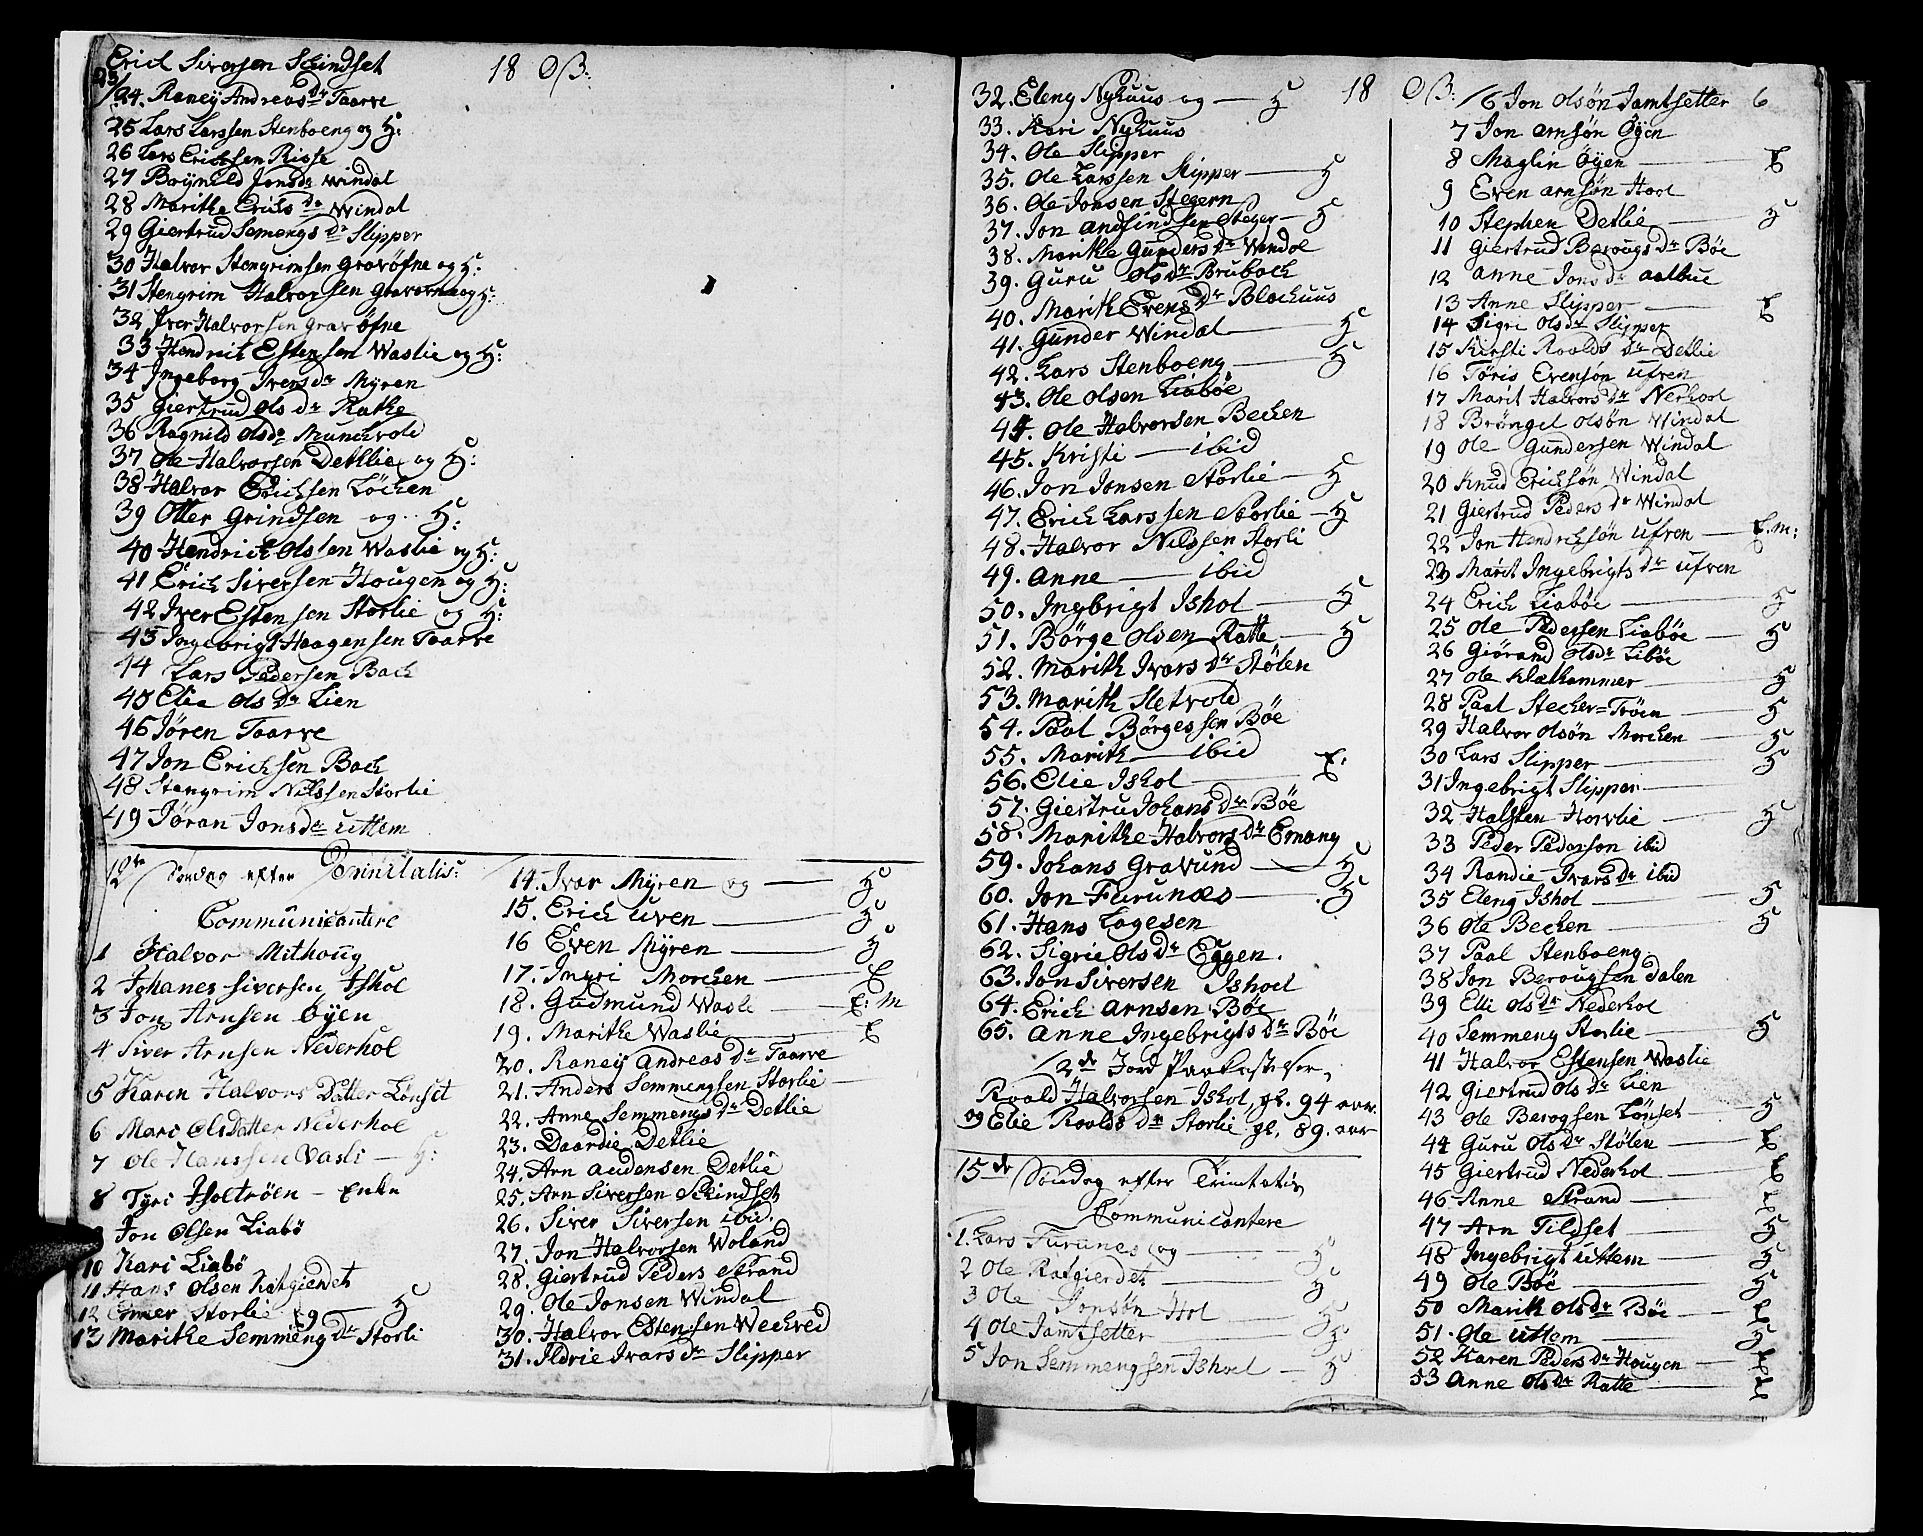 Erich Siversen Skindset
18 OB:
23/
24. Raneÿ Andreas Dr Taarve
25 Lars Larssen Stenboeng og H:
26 Lars Erichsen Risse
27 Boÿnild Jonsdr Windal
28 Marithe Erichs dr Windal
29 Giertrud Semengs Dr Slipper
30 Halvor Stengrimsen Gravøfne og H:
31 Stengrim Halvorsen Gravøvne og H:
32 Iver Halvorsen Gravøfne
33 Hendrik Estensen Waslie og H:
34 Ingeborg Ivers dr Mÿren
35 Giertrud Ols dr Rathe
36 Ragnild Olsdr Munchvold
37 Ole Halvorsen Detlie og H:
38 Halvor Erichsen Løchen
39 Otter Grindsen og H:
40 Hendrich Olssen Waslie og H:
41 Erich Siversen Hougen og H:
42 Iver Estensen Storlie og H:
43 Ingebrigt Haagensen Taarve
44 Lars Pedersen Bach
45 Elie Ols Dr Lien
46 Jøren Taarve
47 Jon Erichsen Bach
48 Stengrim Nilssen Storlie
49 Jøran Jonsdr Uttem
12te Søndag efter Trinitatis:
Communicantere
1 Halvor Mithoug
2 Johanes Siversen Ishol
3 Jon Arnsen Øÿen
4 Siver Arnsen Nederhol
5 Karen Halvors Datter Lønset
6 Mari Ols Datter Nederhol
7 Ole Hanssen Vasli — H:
8 Tÿri Isoltrøen — Enke
9 Jon Olsen Liabø
10 Kari Liabø
11 Hans Olsen Ratgierdet
12 Einer Storlie og — H
13 Marithe Semmeng Dr Storli
14. Ivar Mÿren og — H
15. Erich Uven — H
16 Even Mÿren — H
17. Ingri Morchen — E
18. Gudmund Wasli — E: M
19. Marithe Waslie — E
20. Raneÿ Andreas Dr Taarve
21. Anders Semmengsen Storlie —
22. Anne Semmengs Dr Detlie
23. Daardie Detlie
24. Arn Audensen Detlie
25. Arn Siversen Skindset
26. Siver Siversen ibid.
27. Jon Halvorsen Woland
28. Giertrud Peders Strand
29. Ole Jonsen Windal
30. Halvor Estensen Wechved
31. Ildrie Ivars Dr Slipper
32. Eleng Nÿhuus og — H
33. Kari Nÿhuus
34. Ole Slipper
35. Ole Larssen Slipper — H
36. Ole Jonsen Stegern
37. Jon Andfindsen Steger — H
38. Marithe Gunders Dr Windal
39. Guru Ols Dr Brubach
40. Marith Evens Dr Blochuus
41. Gunder Windal — H
42. Lars Stenboeng — H
43. Ole Olsen Liabøe
44. Ole Halvorsen Bechen
45. Kristi — ibid
46. Jon Jonsen Storlie — H
47. Erich Larssen Storlie — H
48. Halvor Nilssen Storli
49. Anne — ibid
50. Ingbrigt Ishol — H
51. Børge Olsen Ratte — H
52. Marith Ivars Dr Stølen
53. Marith Sletvold
54. Paal Børgessen Bøe
55. Marith — ibid
56. Elie Ishol — E:
57. Giertru Johans Dr Bøe
58. Marithe Halvors Dr Emang
59. Johans Gravund — H
60. Jon Furunæs — H
61. Hans Lagesen
62. Sigrie Ols Dr Eggen.
63. Jon Siversen Ishoel
64. Erich Arnsen Bøe
65. Anne Ingebrigts Dr Bøe
2de Jord Paakastelser,
Roald Halvorsen Ishol, gl. 94 aar.
og Elie Roalds Dr Storlie gl. 89. aar
15de Søndag efter Trinitatis
Communicantere
1. Lars Furunes og — H
2 Ole Ratgierdet — H
3 Ole Jonsøn Hol
4 Ole Jamtsetter — H
5 Jon Semmengsen Ishoel — H
18 OB:
6
6 Jon Olsøn Jamtsetter
7 Jon Arnsøn Øÿen
8 Maglin Øÿen — E
9 Even Arnsøn Hoel
10 Stephen Detlie — H
11 Giertrud Berougs Dr Bøe
12 Anne Jons dr Aalbue
13 Anne Slipper — E
14 Sigri Olsdr Slipper
15 Kirsti Roalds Dr Detlie
16 Tøris Evensøn Ufren
17 Marit Halvors Dr Nerhoel
18 Brøngel Olsøn Windal
19 Ole Gundersen Windal
20 Knud Erichsøn Windal
21 Giertrud Peders Dr Windal
22 Jon Hendrichsøn Ufren — E. M:
23 Marit Ingebrigts Dr Ufren
24 Erich Liabøe — H
25 Ole Pedersen Liabøe — H
26 Giørand Olsdr Libøe
27 Ole Klethammer — H
28 Paal Stecher=Trøen — H
29 Halvor Olsøn Morchen — H
30 Lars Slipper — H
31 Ingebrigt Slipper —
32 Halsten Horvlie — H
33 Peder Pederson ibid
34 Randie Ivars Dr ibid
35 Eleng Ishol — H
36 Ole Bechen — H
37 Paal Stenboeng
38 Jon Berougsen Dalen
39 Elli Ols Dr Nederhol
40 Semmeng Storlie — H
41 Halvor Estensen Waslie
42 Giertrud Ols Dr Lien
43 Ole Berogsen Lønset — H
44 Guru Ols Dr Stølen — E
45 Giertrud Nederhol — E
46 Anne Strand — E
47 Arn Tildset — H
48 Ingebrigt Uttem — H
49 Ole Bøe — H
50 Marith Olsdr Bøe — E
51. Ole Uttem — H
52 Karen Peders Dr Hougen — E
53 Anne Ols Dr Ratte — E